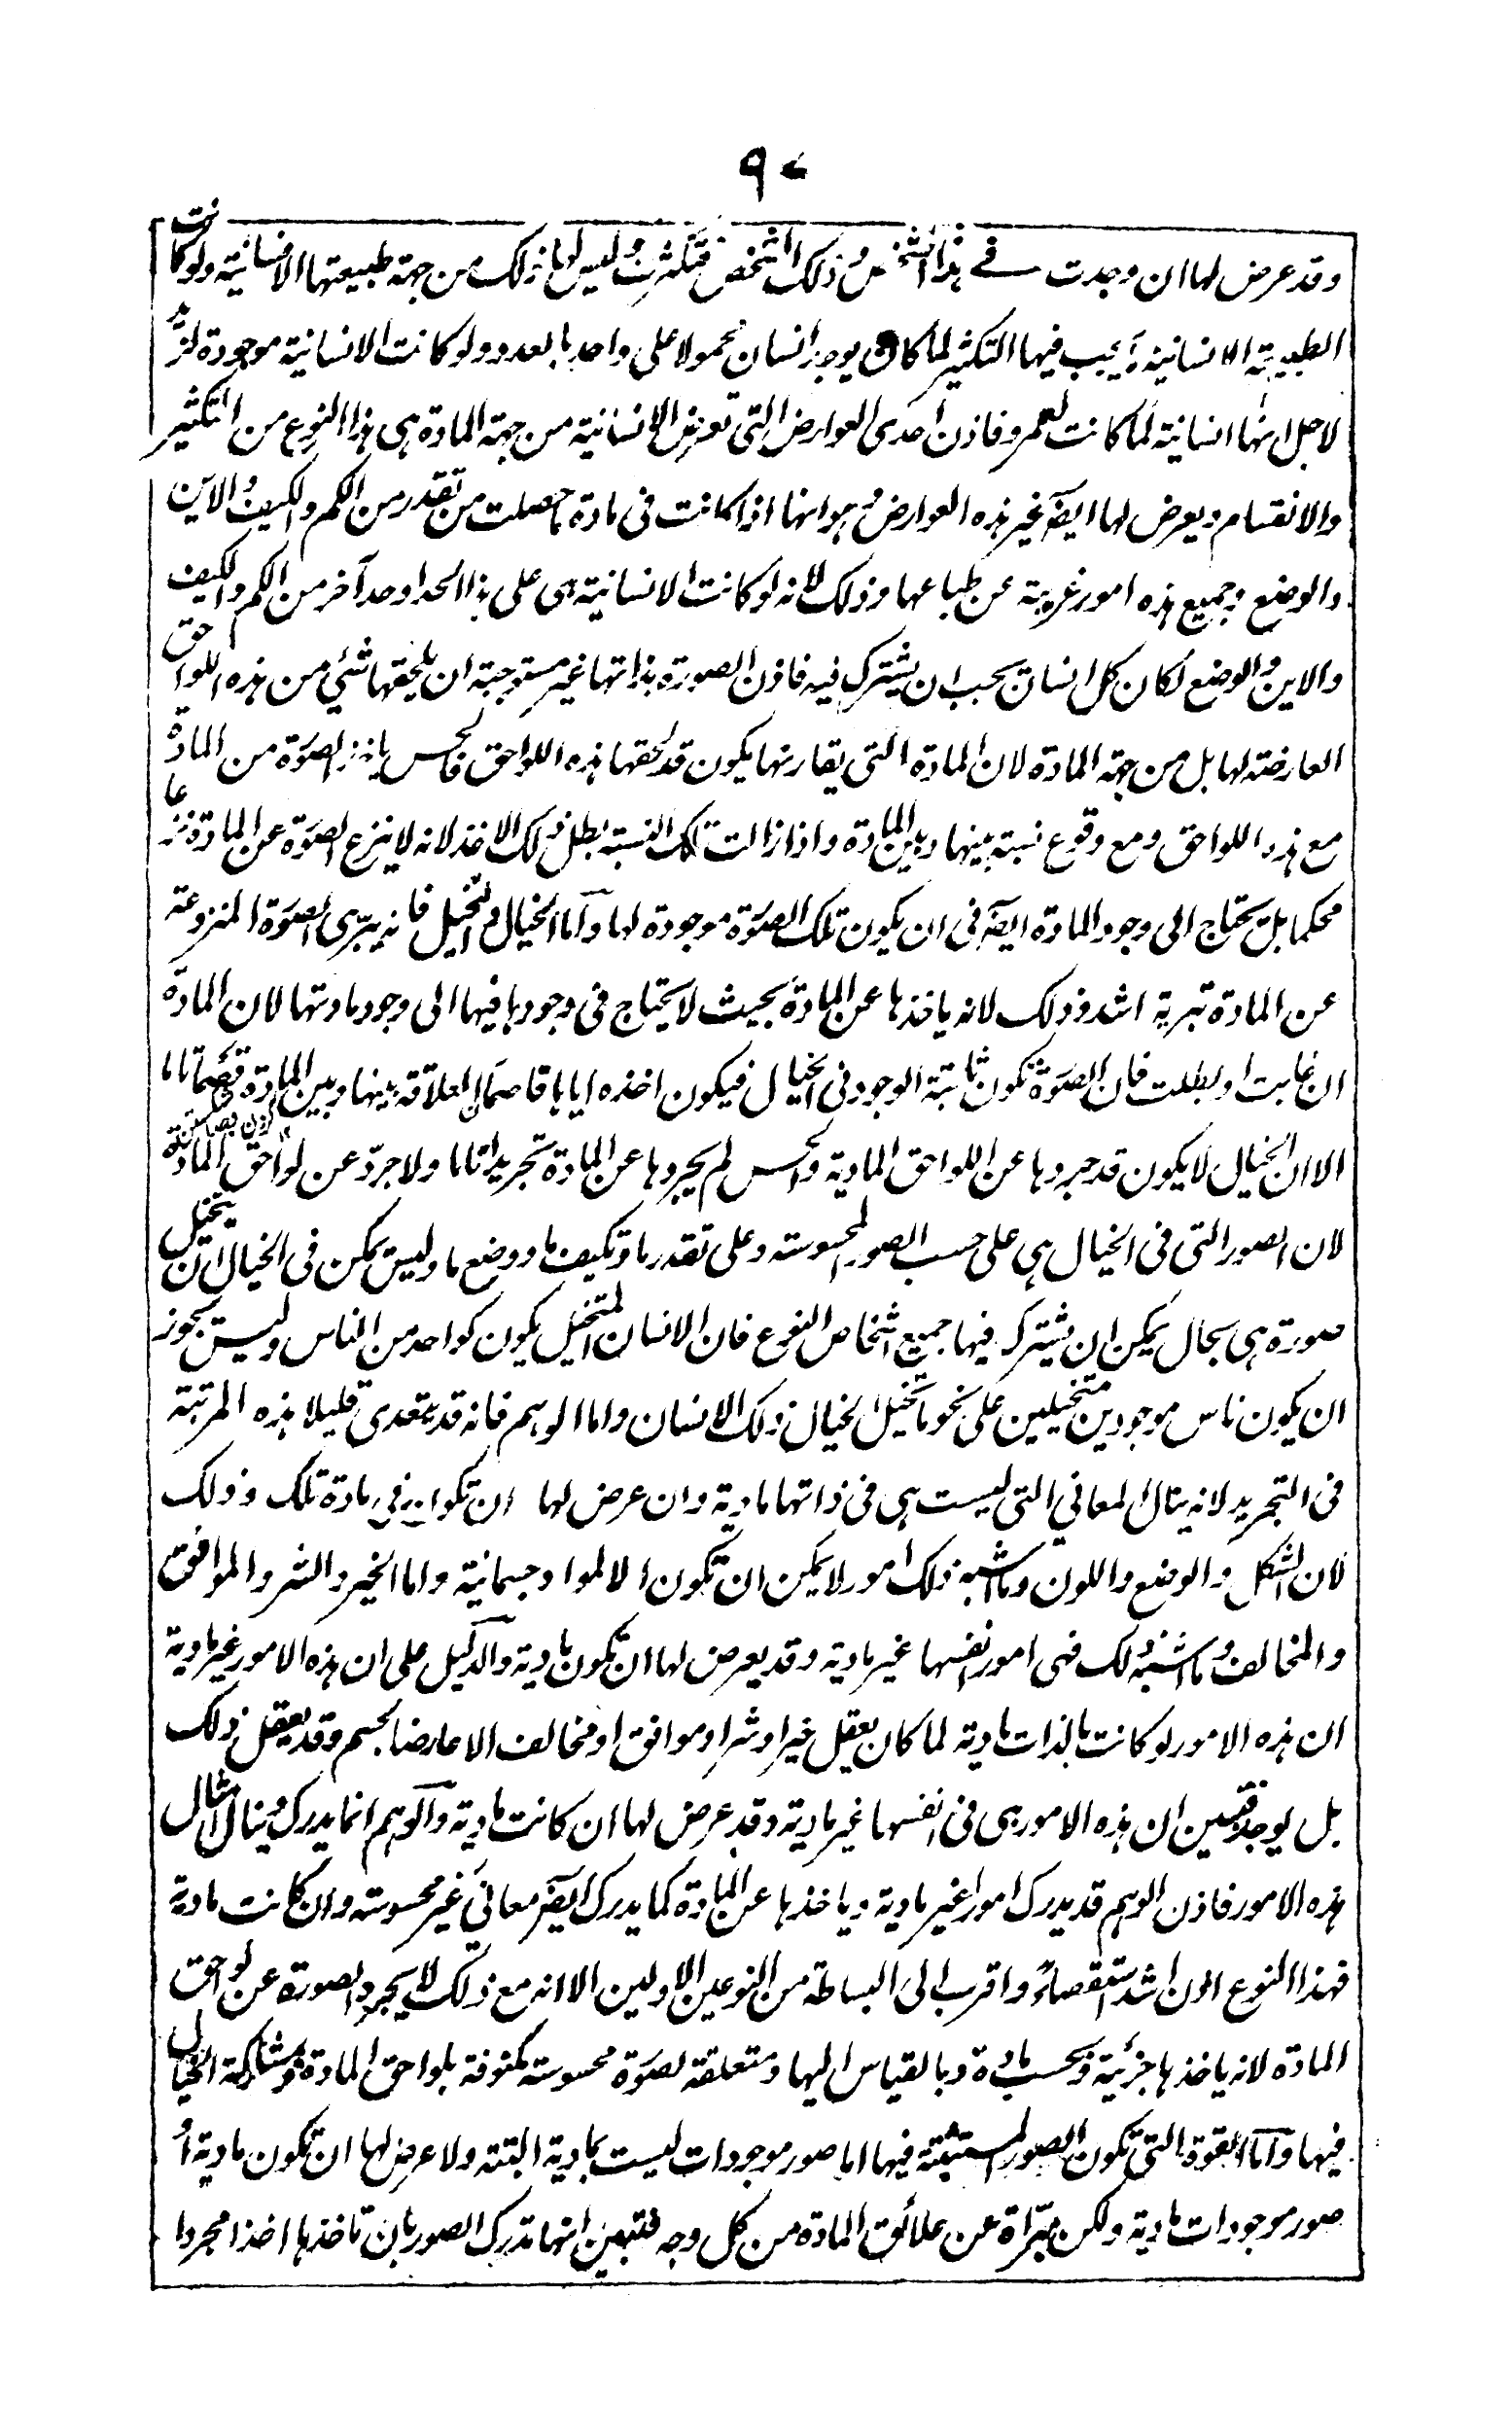 ٩٠
وقد عرض لها ان وجدت في هذا الشخص وذلك الشخص فتكثرت وليس لها ذلك من جهة طبيعتها الانسانية ولو كانت
الطبيعة الانسانية يجب فيها التكثر لما كان يوجد انسان محمولا على واحد بالعدد ولو كانت الانسانية موجودة لزيد
لاجل انها انسانية لما كانت لعمرو فاذن احدى العوارض التي تعرض الانسانية من جهة المادة هى هذا النوع من التكثير
والانقسام ويعرض لها ايضا غير هذه العوارض وهو انها اذا كانت فى مادة ما حصلت من تقدر من الكم والكيف والاين
والوضع وجميع هذه امور غريبة عن طباعها وذلك لانه لو كانت الانسانية هى على هذا الحد او حد آخر من الكم والكيف
والاين والوضع لكان كل انسان يجب ان يشترك فيه فاذن الصورة بذاتها غير مستوجبة ان يلحقها شئي من هذه اللواحق
العارضة لها بل من جهة المادة لان المادة التى يقارنها يكون قد لحقها هذه اللواحق فالحس ياخذ الصورة من المادة
مع هذه اللواحق ومع وقوع نسبة بينها وبين المادة واذا زالت تلك النسبة بطل ذلك الاخذ لانه لا ينزع الصورة عن المادة نزعا
محكما بل يحتاج الى وجود المادة ايضا فى ان يكون تلك الصورة موجودة لها واما الخيال والتخيل فانه يبرى الصورة المنزوعة
عن المادة تبرية اشد وذلك لانه ياخذها عن المادة بحيث لا يحتاج فى وجودها فيها الى وجود مادتها لان المادة
ان غابت او بطلت فان الصورة تكون ثابتة الوجود فى الخيال فيكون اخذه اياها قاصما للعلاقة بينها وبين المادة قصما تاما
الا ان الخيال لا يكون قد جردها عن اللواحق المادية والحس لم يجردها عن المادة تجريدا تاما ولا جرد عن لواحق المادة
لان الصور التى فى الخيال هى على حسب الصور المحسوسة وعلى تقدر ما وتكيف ما ووضع ما وليس يمكن فى الخيال ان يتخيل
صورة هى بحال يمكن ان يشترك فيها جميع اشخاص النوع فان الانسان المتخيل يكون كواحد من الناس وليس يجوز
ان يكون ناس موجودين متخيلين على نحو ما تخيل الخيال ذلك الانسان واما الوهم فانه قد يتعدى قليلا هذه المرتبة
فى التجريد لانه ينال المعاني التى ليست هى فى ذاتها مادية وان عرض لها ان تكون فى مادة تلك وذلك
لان الشكل والوضع واللون وما اشبه ذلك امور لا يمكن ان تكون الا لمواد جسمانية واما الخير والشر والموافق
والمخالف وما اشبه ذلك فهى امور انفسها غير مادية وقد يعرض لها ان تكون مادية والدليل على ان هذه الامور غير مادية
ان هذه الامور لو كانت بالذات مادية لما كان يعقل خير او شر او موافق او مخالف الا عارضا لجسم وقد يعقل ذلك
بل يوجد فتبين ان هذه الامور هى فى انفسها غير مادية وقد عرض لها ان كانت مادية والوهم انما يدرك وينال امثال
هذه الامور فاذن الوهم قد يدرك امورا غير مادية وياخذها عن المادة كما يدرك ايضا معاني غير محسوسة وان كانت مادية
فهذا النوع اذن اشد استقصاء واقرب الى البساطة من النوعين الاولين الا انه مع ذلك لا يجرد الصورة عن لواحق
المادة لانه ياخذها جزئية وبحسب مادة وبالقياس اليها ومتعلقة بصورة محسوسة مكنوفة بلواحق المادة وبمشاركة الخيال
فيها واما القوة التي تكون الصور المستثبتة فيها اما صور موجودات ليست بمادية البتة ولا عرض لها ان تكون مادية او
صور موجودات مادية ولكن مبراة عن علائق المادة من كل وجه فتبين انها تدرك الصور بان تاخذها اخذا مجردا